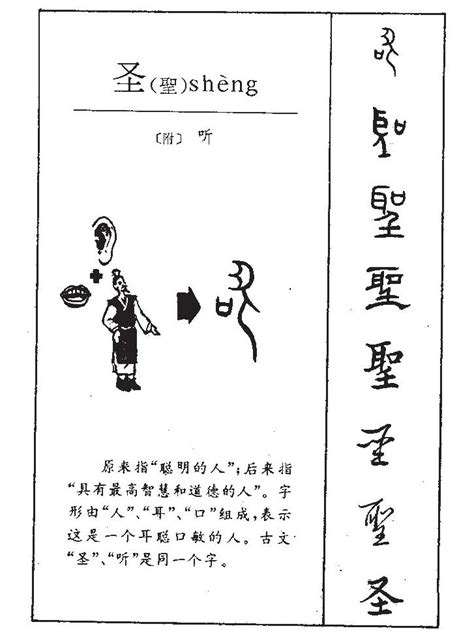 圣(聖)shèng
〔附〕 听
原来指“聪明的人”;后来指
“具有最高智慧和道德的人”。字
形由“人”、“耳”、“口”组成,表示
这是一个耳聪口敏的人。古文
“圣”、“听”是同一个字。
聖
聖
聖
聖
聖
圣